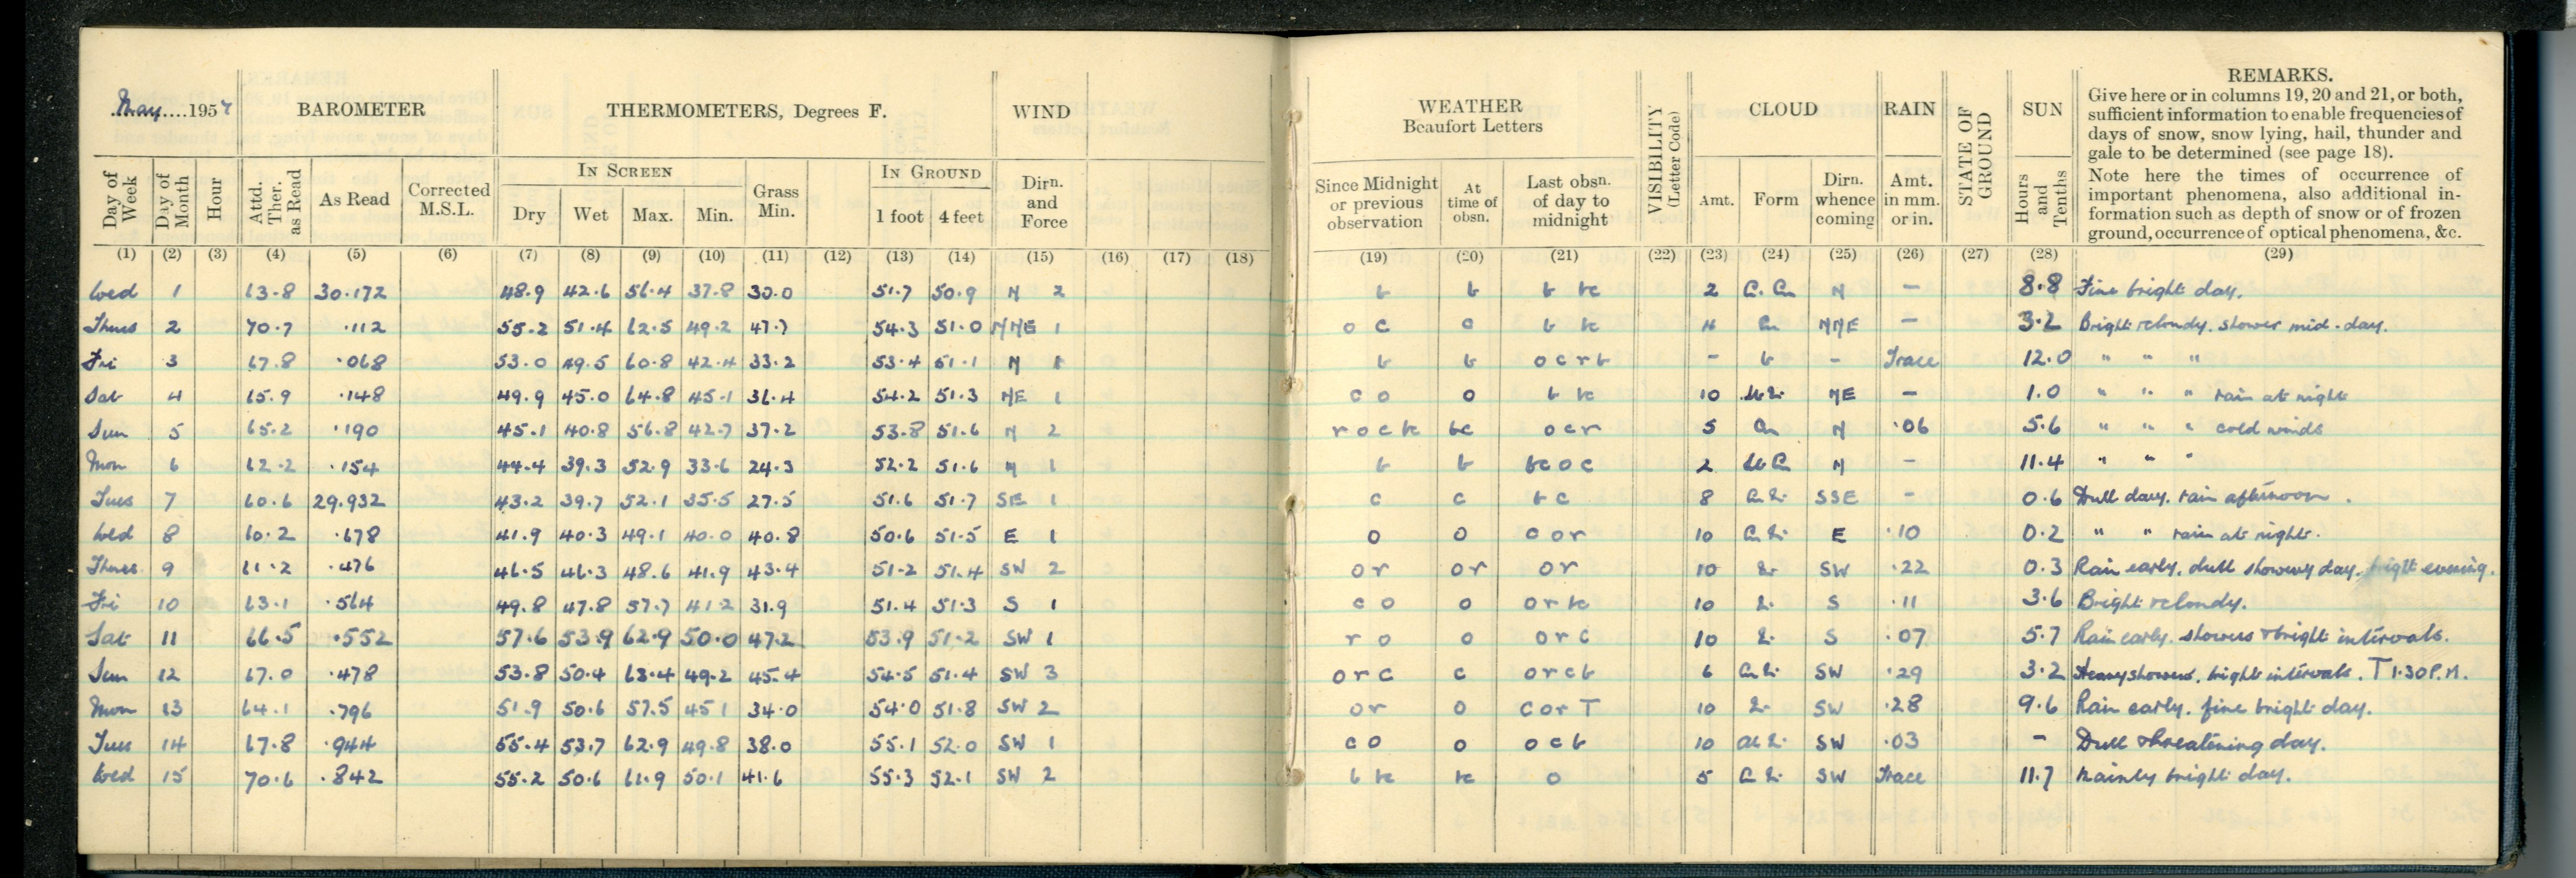 May....1957 BAROMETER THERMOMETERS, Degrees F. WIND WEATHER Beaufort Letters VISIBILITY (Letter Code) CLOUD RAIN STATE OF GROUND SUN REMARKS.
Give here or in columns 19, 20 and 21, or both,
sufficient information to enable frequencies of
days of snow, snow lying, hail, thunder and
gale to be determined (see page 18).
Note here the times of occurrence of
important phenomena, also additional in-
formation such as depth of snow or of frozen
ground, occurrence of optical phenomena, &c.
IN SCREEN IN GROUND
Day of Week Day of Month Hour Attd. Ther. as Read As Read Corrected M.S.L. Dry Wet Max. Min. Grass Min. 1 foot 4 feet Dirn. and Force Since Midnight or previous observation At time of obsn. Last obsn. of day to midnight Amt. Form Dirn. whence coming Amt. in mm. or in. Hours and Tenths
(1) (2) (3) (4) (5) (6) (7) (8) (9) (10) (11) (12) (13) (14) (15) (16) (17) (18) (19) (20) (21) (22) (23) (24) (25) (26) (27) (28) (29)
Wed 1 63.8 30.172 48.9 42.6 56.4 37.8 30.0 51.7 50.9 N 2 b b b bc 2 N - 8.8 Fine bright day.
Thurs 2 70.7 .112 55.2 51.4 62.5 49.2 47.7 54.3 51.0 NNE 1 o c o b bc Cu NNE - 3.2 Bright & cloudy. shower mid-day.
Fri 3 67.8 .068 53.0 49.5 60.8 42.4 33.2 53.4 51.1 N 1 b b o c r b - b - Trace 12.0 " " "
Sat 4 65.9 .148 49.9 45.0 64.8 45.1 36.4 54.2 51.3 NE 1 c o o b bc 10 NE - 1.0 " " " rain at night
Sun 5 65.2 .190 45.1 40.8 56.8 42.7 37.2 53.8 51.6 N 2 r o c bc bc o c r 5 Cu N .06 5.6 " " " cold winds
Mon 6 62.2 .154 44.4 39.3 52.9 33.6 24.3 52.2 51.6 N 1 b b bc o c 2 N - 11.4 " " "
Tues 7 60.6 29.932 43.2 39.7 52.1 35.5 27.5 51.6 51.7 SE 1 c c b c 8 SSE - 0.6 Dull day. rain afternoon.
Wed 8 60.2 .678 41.9 40.3 49.1 40.0 40.8 50.6 51.5 E 1 o o c o r 10 E .10 0.2 " " rain at night.
Thurs 9 61.2 .476 46.5 46.3 48.6 41.9 43.4 51.2 51.4 SW 2 o r o r o r 10 SW .22 0.3 Rain early. dull showery day. bright evening.
Fri 10 63.1 .564 49.8 47.8 57.7 41.2 31.9 51.4 51.3 S 1 c o o o r bc 10 S .11 3.6 Bright & cloudy.
Sat 11 66.5 .552 57.6 53.9 62.9 50.0 47.2 53.9 51.2 SW 1 r o o o r c 10 S .07 5.7 Rain early. showers & bright intervals.
Sun 12 67.0 .478 53.8 50.4 63.4 49.2 45.4 54.5 51.4 SW 3 o r c c o r c b 6 SW .29 3.2 Heavy showers. bright intervals. T 1.30 P.M.
Mon 13 64.1 .796 51.9 50.6 57.5 45 1 34.0 54.0 51.8 SW 2 o r o c o r T 10 SW .28 9.6 Rain early. fine bright day.
Tues 14 67.8 .944 55.4 53.7 62.9 49.8 38.0 55.1 52.0 SW 1 c o o o c b 10 SW .03 - Dull threatening day.
Wed 15 70.6 .842 55.2 50.6 61.9 50.1 41.6 55.3 52.1 SW 2 b bc bc o 5 SW Trace 11.7 Mainly bright day.